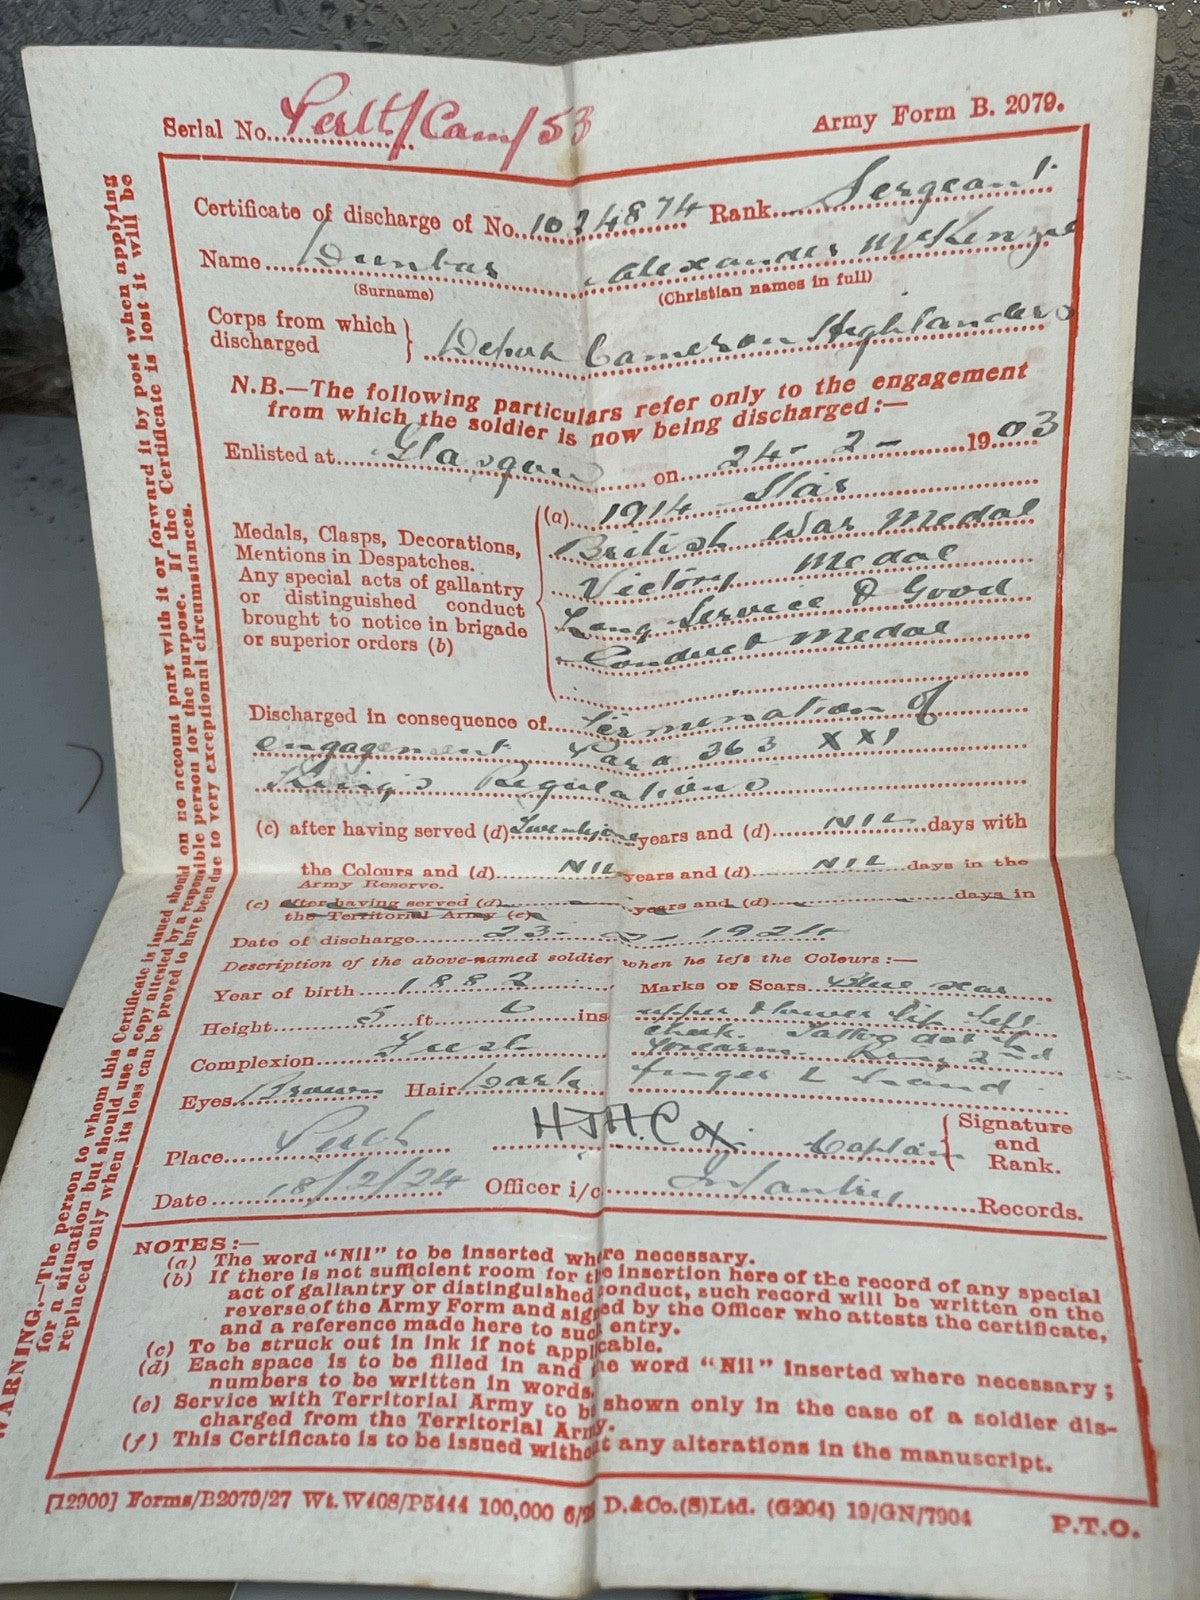 Serial No. Perth/Cam/53
Army Form B. 2079.
Certificate of discharge of No. 1024874 Rank Sergeant
Name Dunbar Alexander McKenzie
(Surname) (Christian names in full)
Corps from which discharged } Depot Cameron Highlanders
N.B.—The following particulars refer only to the engagement
from which the soldier is now being discharged:—
Enlisted at Glasgow on 24-2-1903
Medals, Clasps, Decorations,
Mentions in Despatches.
Any special acts of gallantry
or distinguished conduct
brought to notice in brigade
or superior orders (b)
(a) 1914 Star
British War Medal
Victory Medal
Long Service & Good
Conduct Medal
Discharged in consequence of Termination of
engagement Para 363 XXI
King's Regulations
(c) after having served (d) Twentyone years and (d) NIL days with
the Colours and (d) NIL years and (d) NIL days in the
Army Reserve.
(c) after having served (d) years and (d) days in
the Territorial Army (e)
Date of discharge 23- 2- 1924
Description of the above-named soldier when he left the Colours:—
Year of birth 1882
Height 5 ft 6 ins
Complexion Fresh
Eyes Brown Hair Dark
Marks or Scars Blue scar
upper & lower lip left
cheek. Tattoo dot
forearm. Ring 2nd
finger L hand
Place Perth
H J H. Cox. Captain } Signature and Rank.
Date 18/2/24 Officer i/c Infantry Records.
NOTES:—
(a) The word "Nil" to be inserted where necessary.
(b) If there is not sufficient room for the insertion here of the record of any special
act of gallantry or distinguished conduct, such record will be written on the
reverse of the Army Form and signed by the Officer who attests the certificate,
and a reference made here to such entry.
(c) To be struck out in ink if not applicable.
(d) Each space is to be filled in and the word "Nil" inserted where necessary;
numbers to be written in words.
(e) Service with Territorial Army to be shown only in the case of a soldier dis-
charged from the Territorial Army.
(f) This Certificate is to be issued without any alterations in the manuscript.
[12900] Forms/B2079/27 Wt. W408/P5444 100,000 D.&Co.(S)Ltd. (G204) 19/GN/7904
P.T.O.
WARNING.—The person to whom this Certificate is issued should on no account part with it or forward it by post when applying
for a situation but should use a copy attested by a responsible person for the purpose. If the Certificate is lost it will be
replaced only when its loss can be proved to have been due to very exceptional circumstances.